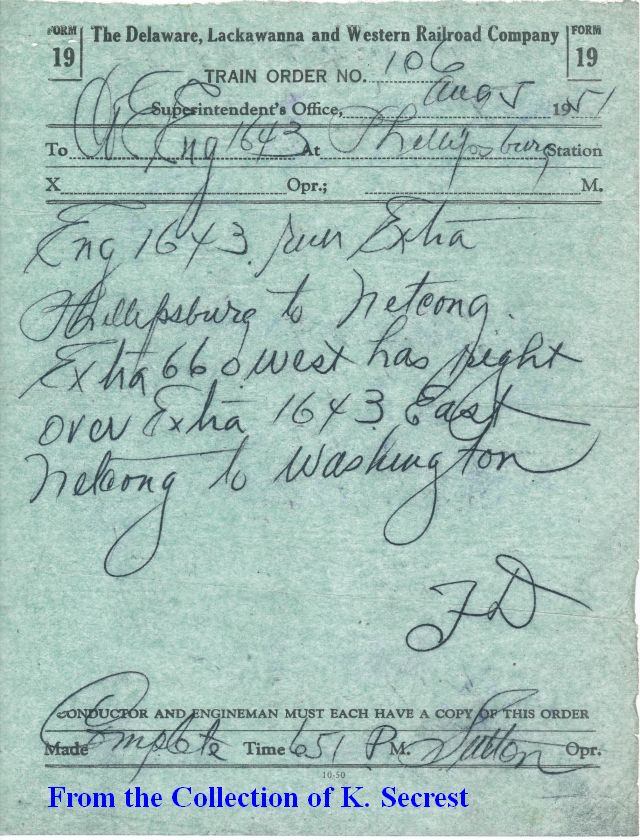 FORM 19 The Delaware, Lackawanna and Western Railroad Company FORM 19
TRAIN ORDER NO. 106
Superintendent's Office, Aug 5 1951
To C&E Eng 1643 At Phillipsburg Station
X Opr.; M.
Eng 1643 run Extra
Phillipsburg to Netcong.
Extra 660 west has right
over Extra 1643 East
Netcong to Washington
CONDUCTOR AND ENGINEMAN MUST EACH HAVE A COPY OF THIS ORDER
Made Complete Time 651 P M. Sutton Opr.
10-50
From the Collection of K. Secrest